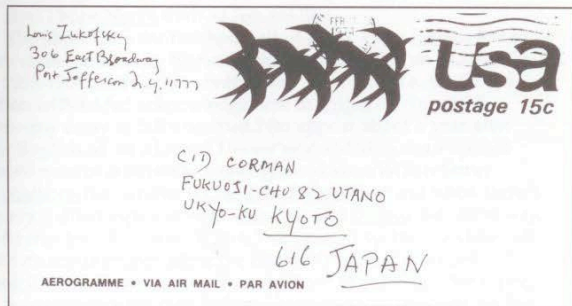 Louis Zukofsky
306 East Broadway
Port Jefferson N.Y. 11777
FEB
1974
usa
postage 15c
CID CORMAN
FUKUOJI-CHO 82 UTANO
UKYO-KU KYOTO
616 JAPAN
AEROGRAMME • VIA AIR MAIL • PAR AVION